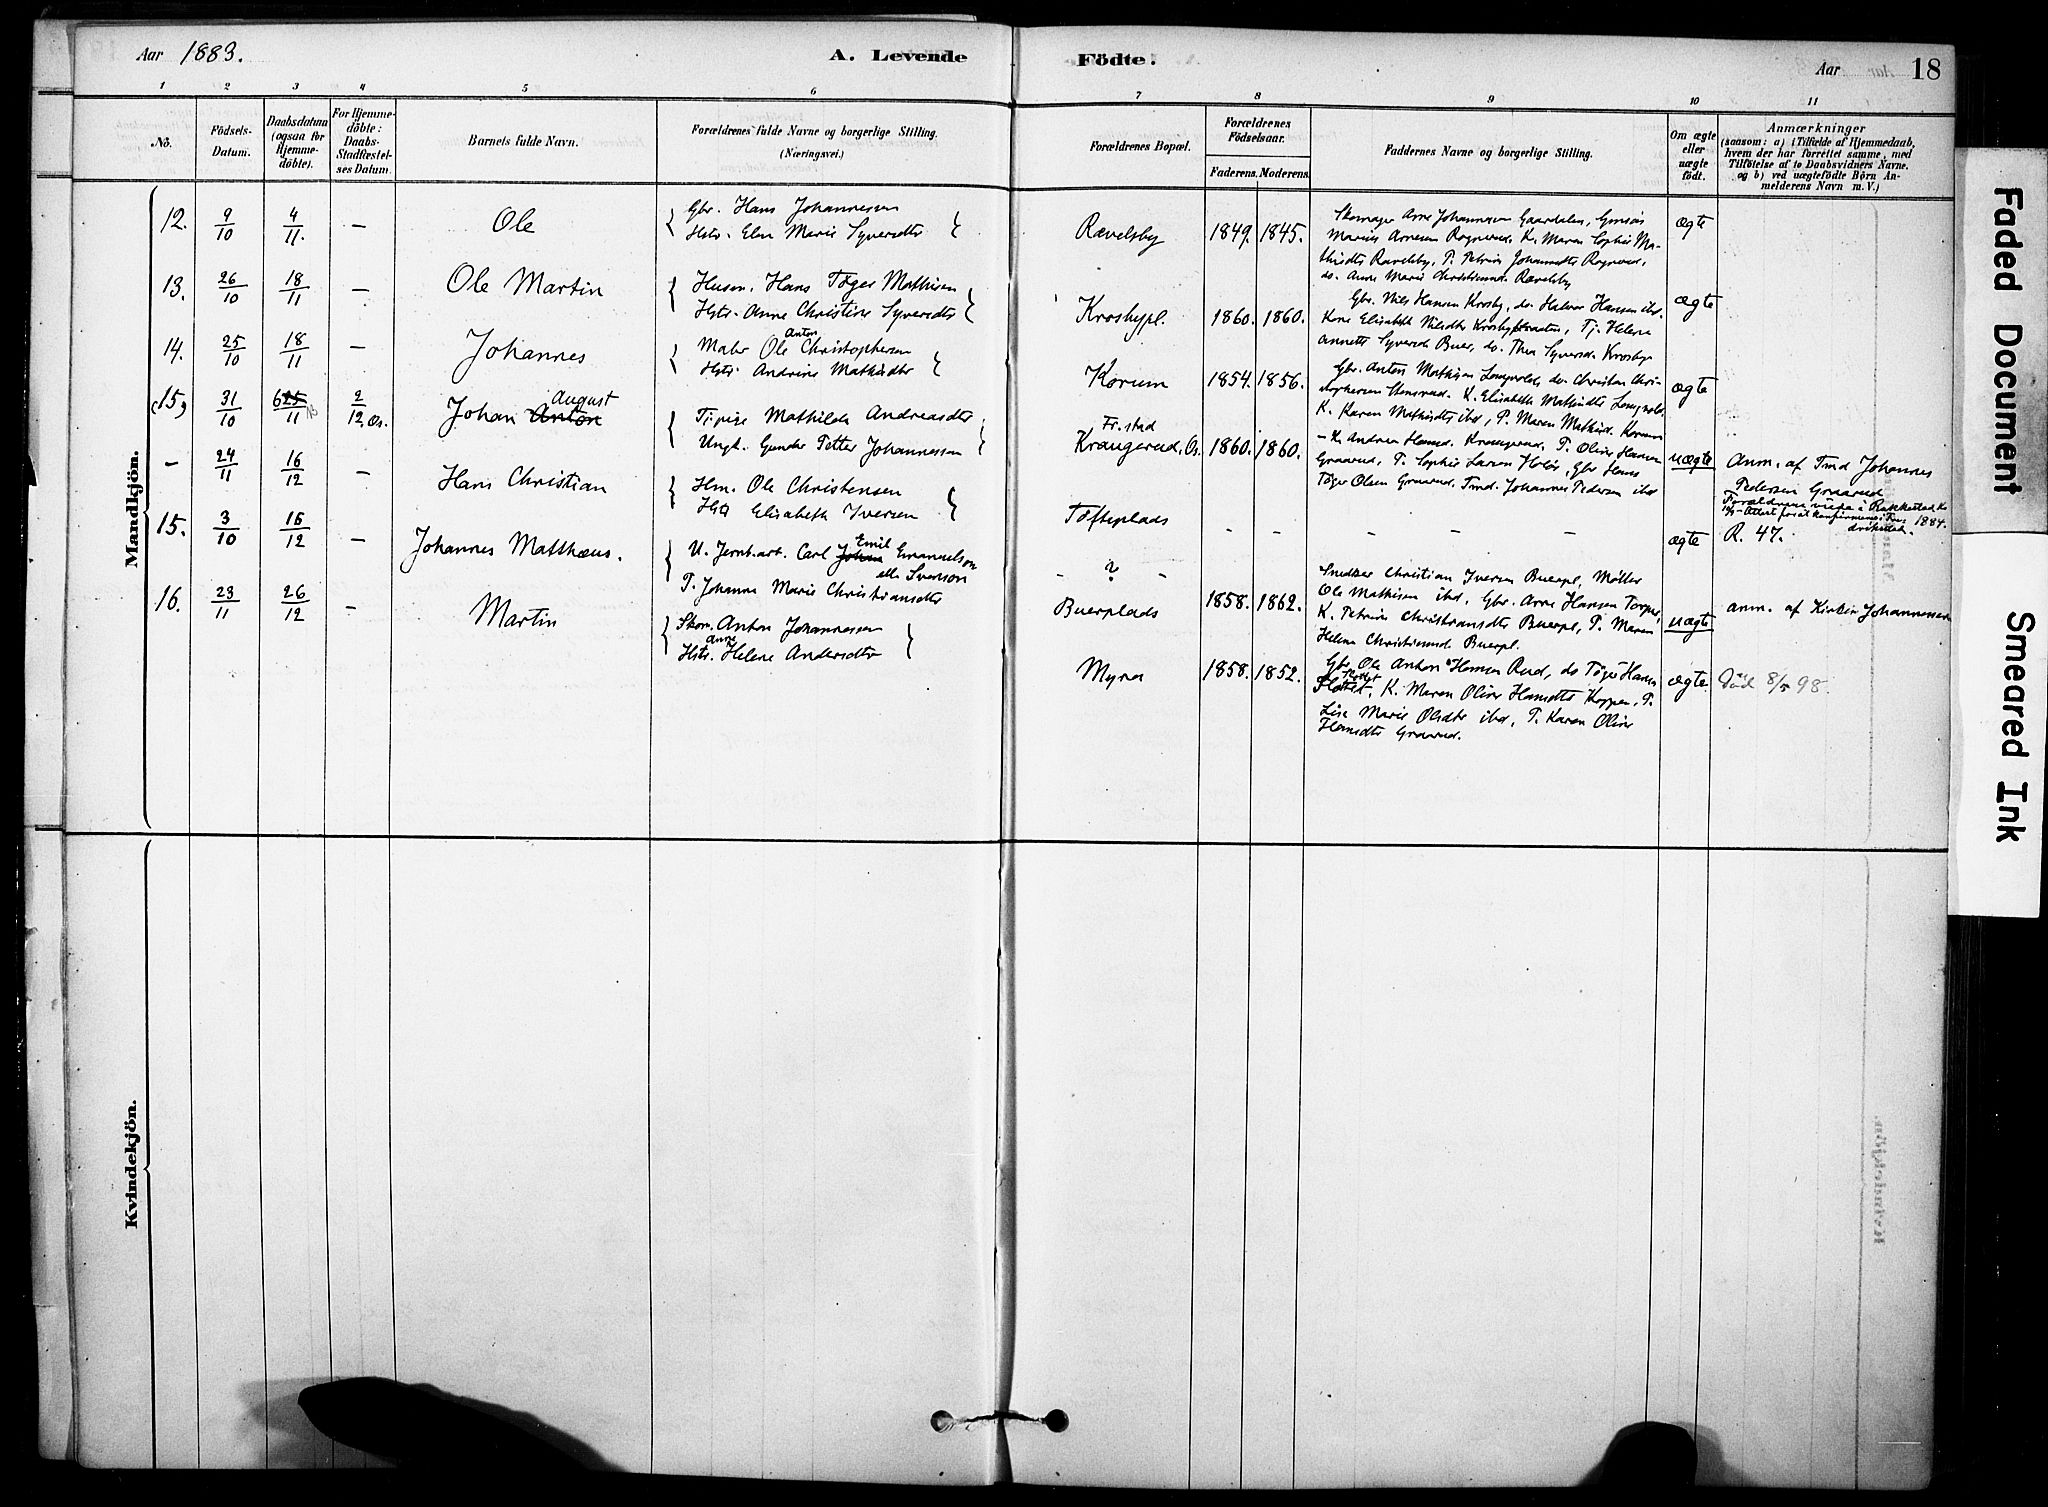 Aar 1883.
A. Levende Födte.
Aar 18
1 2 3 4 5 6 7 8 9 10 11
No.
Födsels-
Datum.
Daabsdatum
(ogsaa for
Hjemme-
döbte).
For Hjemme-
döbte:
Daabs-
Stadfæstel-
ses Datum.
Barnets fulde Navn.
Forældrenes fulde Navne og borgerlige Stilling.
(Næringsvei.)
Forældrenes Bopæl.
Forældrenes
Födselsaar.
Faderens. Moderens.
Faddernes Navne og borgerlige Stilling.
Om ægte
eller
uægte
födt.
Anmærkninger
(saasom: a) i Tilfælde af Hjemmedaab,
hvem der har forrettet samme, med
Tilföielse af to Daabsvidners Navne.
og b) ved uægtefödte Börn An-
melderens Navn m. V.)
Mandkjön.
12. 9/10 4/11. — Ole
Gbr. Hans Johannessen
Hstr. Elen Marie Syversdtr
Rævelsby 1849. 1845.
Skomager Arne Johannesen Gaardalen,
Marius Arnesen Rognerud, K. Maren Sophie Ma-
thisdtr Rævelsby, P. Petrine Johannesdtr Rognerud,
do. Anne Marie Rævelsby
ægte
13. 26/10 18/11 — Ole Martin
Husm. Hans Töger Mathisen
Hstr. Anne Christine Syversdtr
Krosbypl. 1860. 1860.
Gbr. Nils Hansen Krosby, do. Halvor Hansen ibd.
Kone Elisabeth Nilsdtr Tj. Helene
Annette Syversd. Buer, do. Thea Syversd. Krosby
ægte
14. 25/10 18/11 — Johannes
Maler Ole Anton Christophersen
Hstr. Andrine Mathisdtr
Korum 1854. 1856.
Gbr. Anton Mathisen do Christian Chri-
stophersen K. Elisabeth Mathisdtr
K. Karen Mathisdtr ibd, P. Maren Mathisd. Korum
ægte
(15) 31/10 625/11 2/12 Os. Johan Anton August
Tj.pige Mathilde Andreasdtr
Ungk. Gunder Petter Johannessen
Fr.stad
Krangerud, Os. 1860. 1860.
— K. Andrea Hansd. Krangerud, P. Oline Hansen
Graarud, P. Sophie Larsen Gbr Hans
Töger Olsen Graarud, Tmd. Johannes Pedersen ibd
uægte
Anm. af Tmd Johannes
Pedersen Graarud
Forældrene viede i Rakkestad
1884.
— 24/11 16/12 — Hans Christian
Hm. Ole Christensen
Hstr Elisabeth Iversen
Töfteplads — — — —
ægte R. 47.
15. 3/10 16/12 — Johannes Matthæus.
U. Jernb.arb. Carl Johan Emil Emanuelson
elle Svenson
P. Johanne Marie Christiansdtr
— ? —
Buerplads 1858. 1862.
Snedker Christian Iversen Buerpl, Möller
Ole Mathisen ibd, Gbr. Arne Hansen Torper,
K. Petrine Christiansdtr Buerpl, P. Maren
Helene Christiansd Buerpl.
uægte
anm. af Kirstin Johannessen
16. 23/11 26/12 — Martin
Skom. Anton Johannessen
Hstr. Anne Helene Andersdtr
Myra 1858. 1852.
Gbr. Ole Anton Hansen Rud, do Töger Hansen
K. Maren Oline Hansdtr Koppen, P.
Lise Marie Olsdtr ibd, P. Karen Oline
Hansdtr Graarud.
ægte. Död 8/5 98.
Kvindekjön.
Faded Document
Smeared Ink